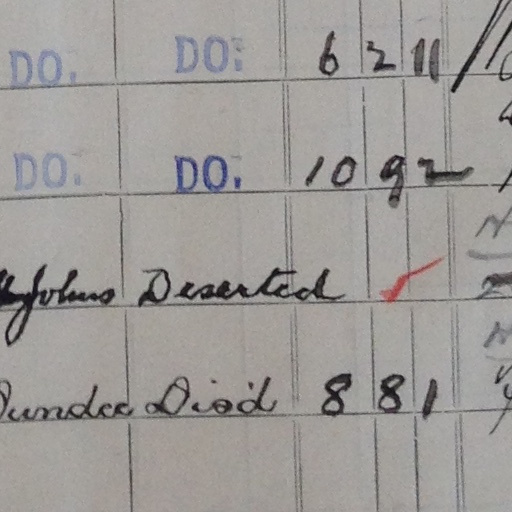 DO. DO: 6 2 11
DO. DO. 10 9 2
Deserted ✓
Dundee Disd 8 8 1